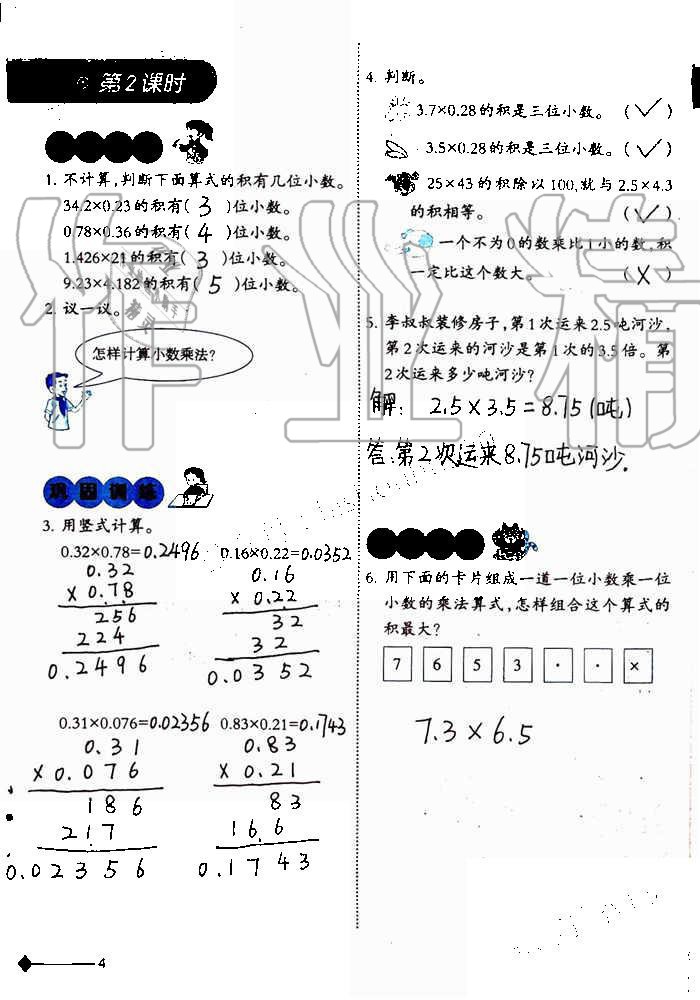 第2课时
1. 不计算,判断下面算式的积有几位小数。
34.2×0.23的积有( 3 )位小数。
0.78×0.36的积有( 4 )位小数。
1.426×21的积有( 3 )位小数。
9.23×4.182的积有( 5 )位小数。
2. 议一议。
怎样计算小数乘法?
巩固训练
3. 用竖式计算。
0.32×0.78=0.2496 0.16×0.22=0.0352
0.32
×0.78
256
224
0.2496
0.16
×0.22
32
32
0.0352
0.31×0.076=0.02356 0.83×0.21=0.1743
0.31
×0.076
186
217
0.02356
0.83
×0.21
83
16.6
0.1743
4
4. 判断。
3.7×0.28的积是三位小数。 (✓)
3.5×0.28的积是三位小数。(✓)
25×43的积除以100,就与2.5×4.3
的积相等。 (✓)
一个不为0的数乘比1小的数,积
一定比这个数大。 (×)
5. 李叔叔装修房子,第1次运来2.5吨河沙,
第2次运来的河沙是第1次的3.5倍。第
2次运来多少吨河沙?
解: 2.5×3.5=8.75(吨)
答:第2次运来8.75吨河沙.
6. 用下面的卡片组成一道一位小数乘一位
小数的乘法算式,怎样组合这个算式的
积最大?
7 6 5 3 · · ×
7.3×6.5
作业精